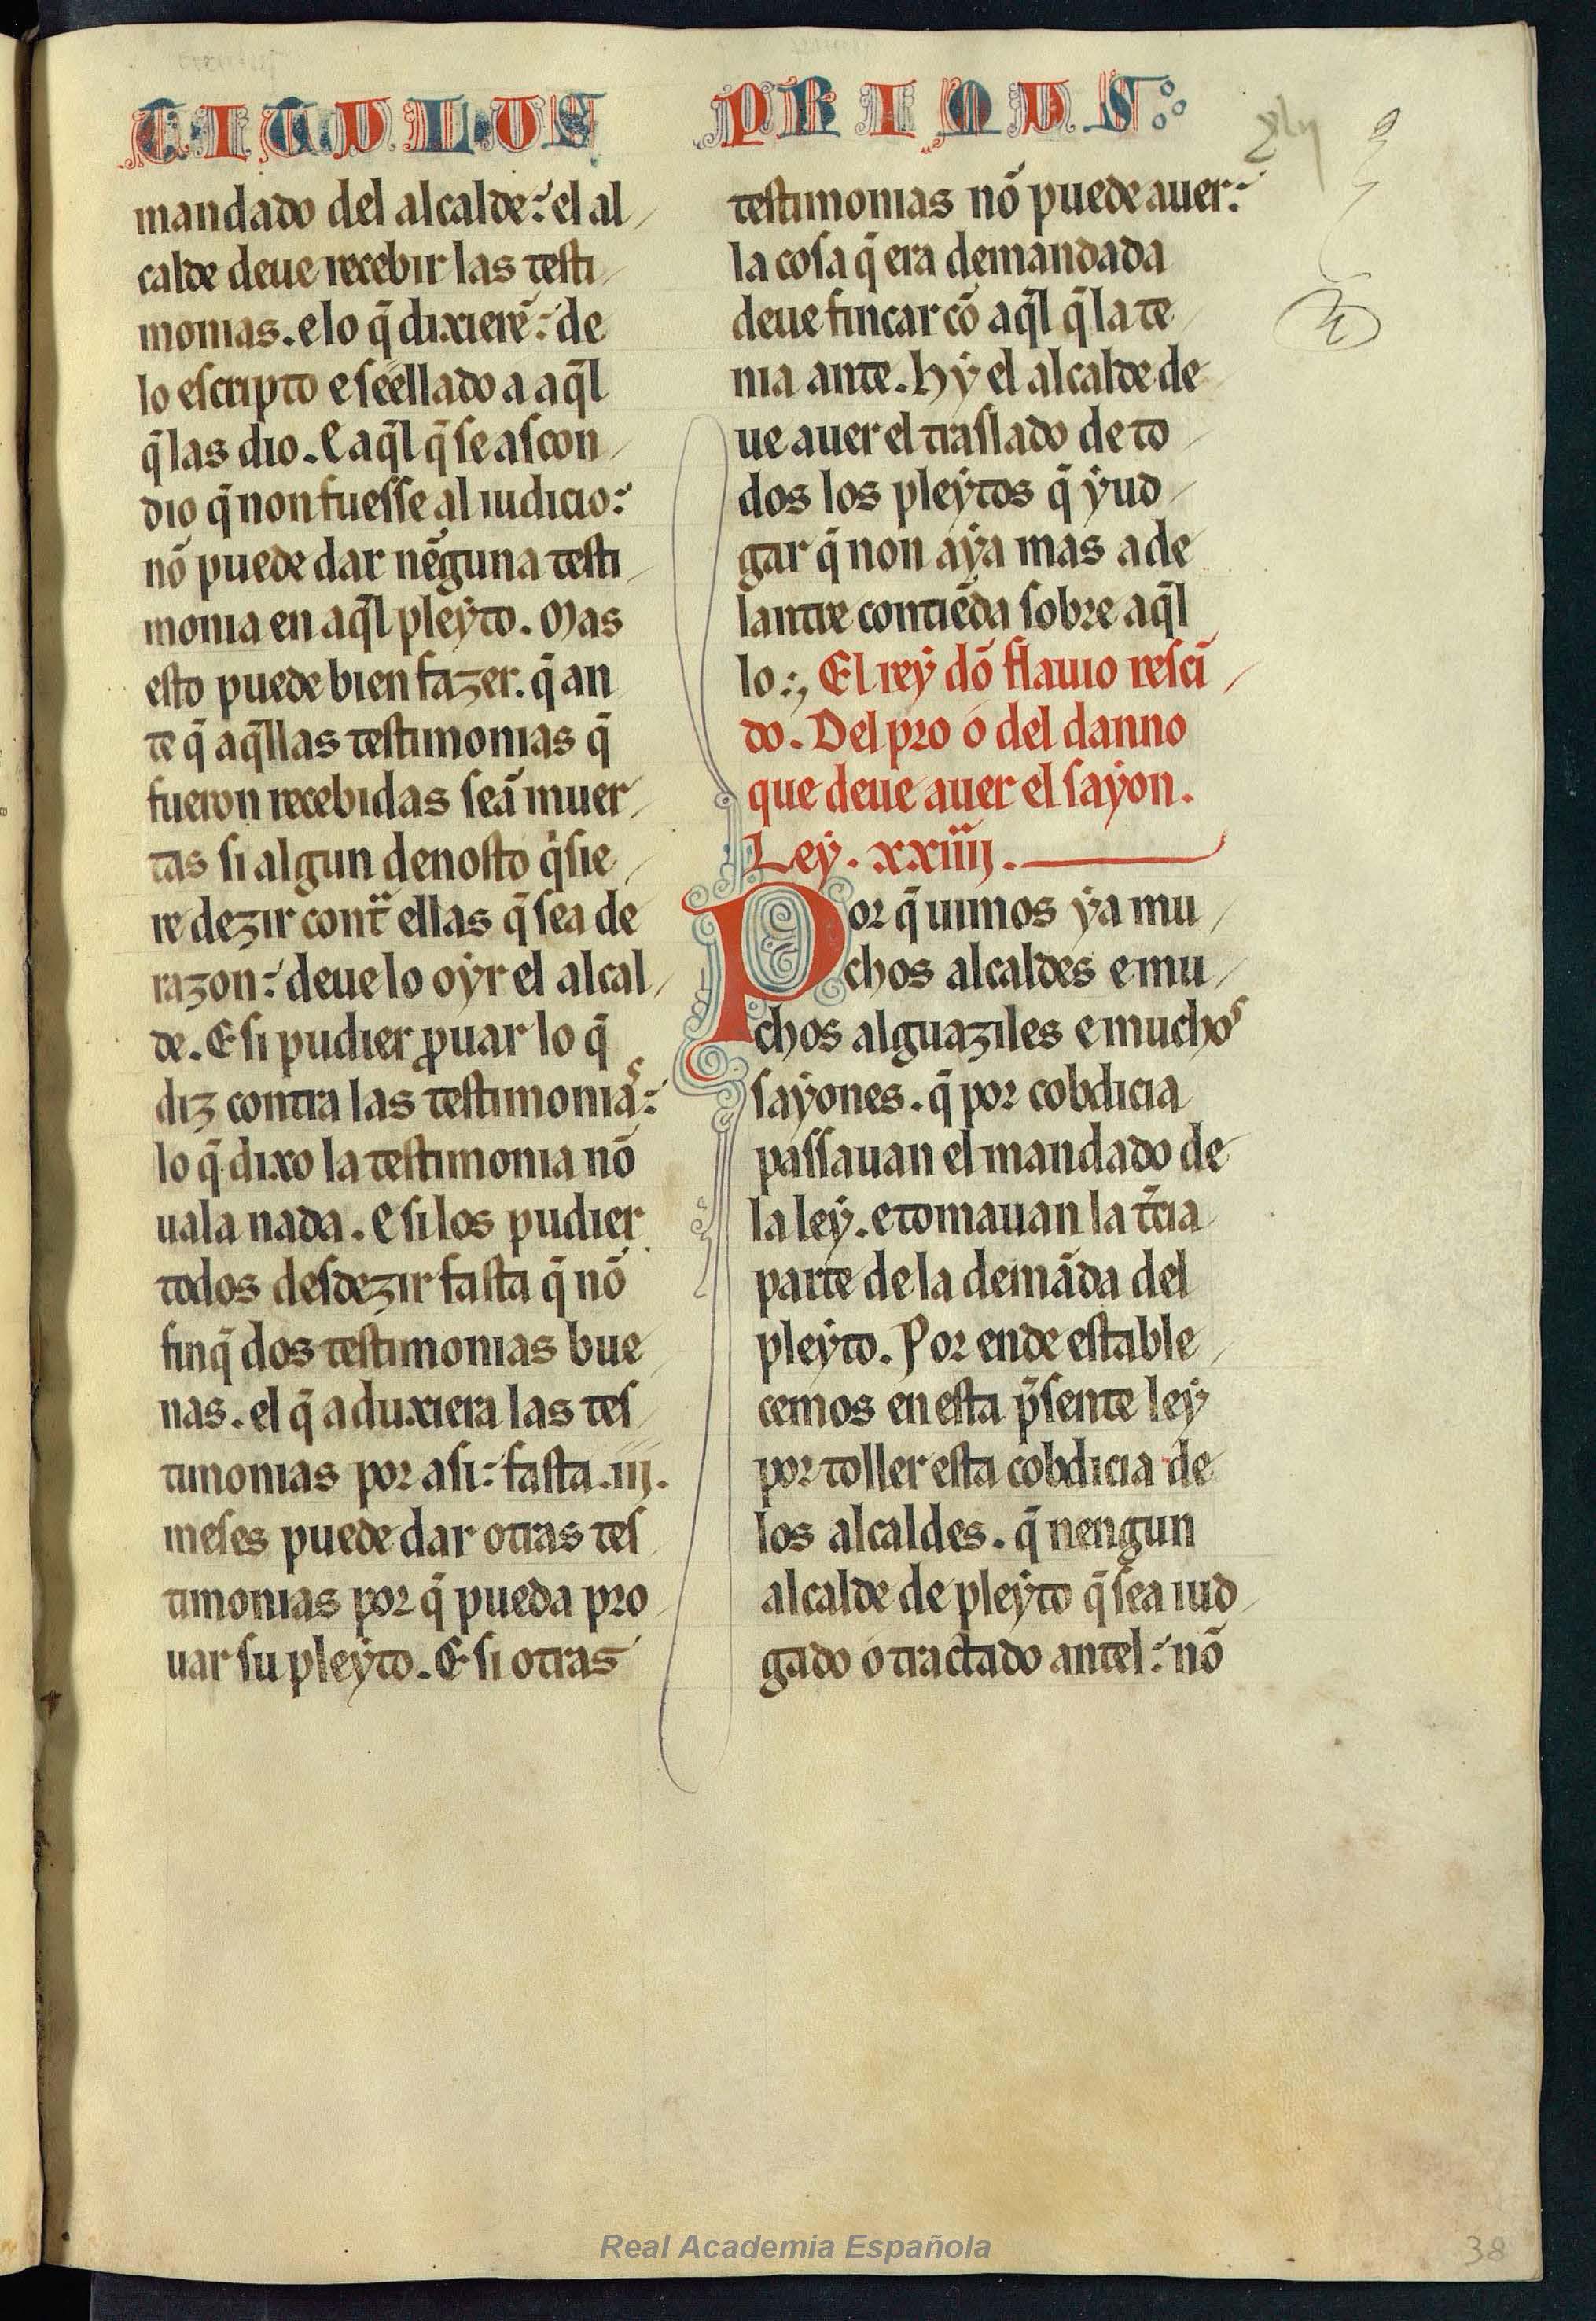 TITULUS PRIMUS:
mandado del alcalde: el al
calde deue recebir las testi
monias. e lo q̃ dixierẽ: de
lo escripto e seellado a aq̃l
q̃ las dio. E aq̃l q̃ se ascon
dio q̃ non fuesse al iudicio:
nõ puede dar nẽguna testi
monia en aq̃l pleyto. Mas
esto puede bien fazer. q̃ an
te q̃ aq̃llas testimonias q̃
fueron recebidas seã muer
tas si algun denosto q̃sie
re dezir cont̃ ellas q̃ sea de
razon: deue lo oyr el alcal
de. E si pudier ꝓuar lo q̃
diz contra las testimonias:
lo q̃ dixo la testimonia nõ
uala nada. E si los pudier
todos desdezir fasta q̃ nõ
finq̃ dos testimonias bue
nas. el q̃ aduxiera las tes
timonias por asi: fasta .iij.
meses puede dar otras tes
timonias por q̃ pueda pro
uar su pleyto. E si otras
testimonias nõ puede auer:
la cosa q̃ era demandada
deue fincar cõ aq̃l q̃ la te
nia ante. Hy el alcalde de
ue auer el traslado de to
dos los pleytos q̃ yud
gar q̃ non aya mas ade
lantre contiẽda sobre aq̃l
lo:, El rey dõ flauio resci
do. Del pro o del danno
que deue auer el sayon.
Ley. xxiiij.
Por q̃ uimos ya mu
chos alcaldes e mu
chos alguaziles e muchos
sayones. q̃ por cobdicia
passauan el mandado de
la ley. e tomauan la t̃cia
parte de la demãda del
pleyto. Por ende estable
cemos en esta p̃sente ley
por toller esta cobdicia de
los alcaldes. q̃ nengun
alcalde de pleyto q̃ sea iud
gado o tractado antel: nõ
Real Academia Española
38